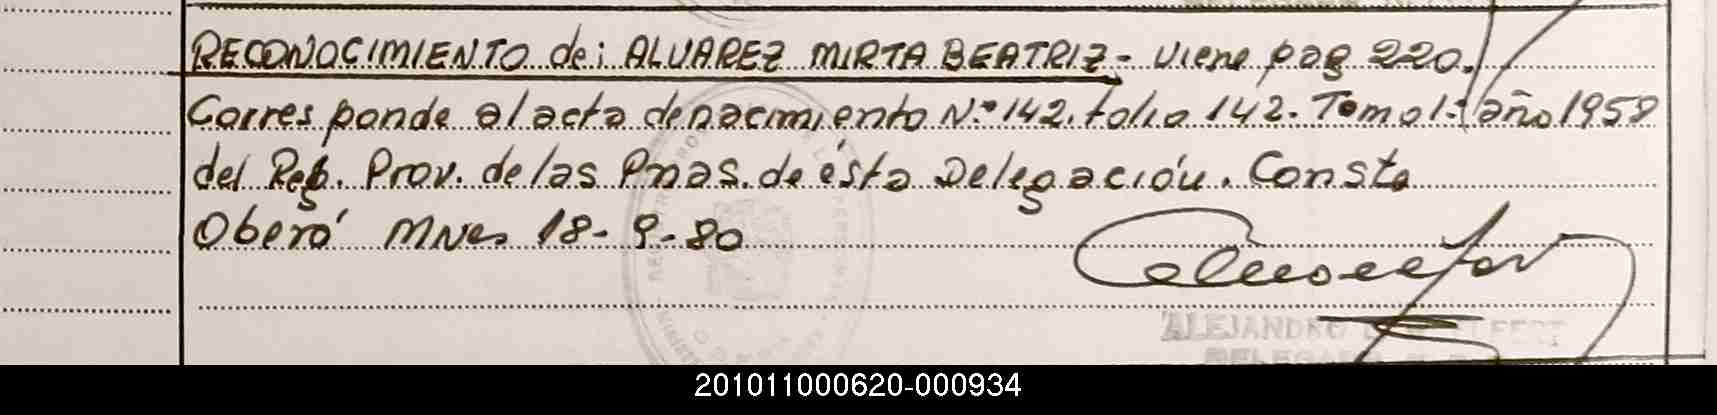 RECONOCIMIENTO de: ALVAREZ MIRTA BEATRIZ - Viene pag 220.
Corresponde al acta de nacimiento N.º 142. folio 142. Tomo I. año 1958
del Reg. Prov. de las Pnas. de ésta Delegación. Consta
Oberá Mnes 18-9-80
ALEJANDRO
201011000620-000934